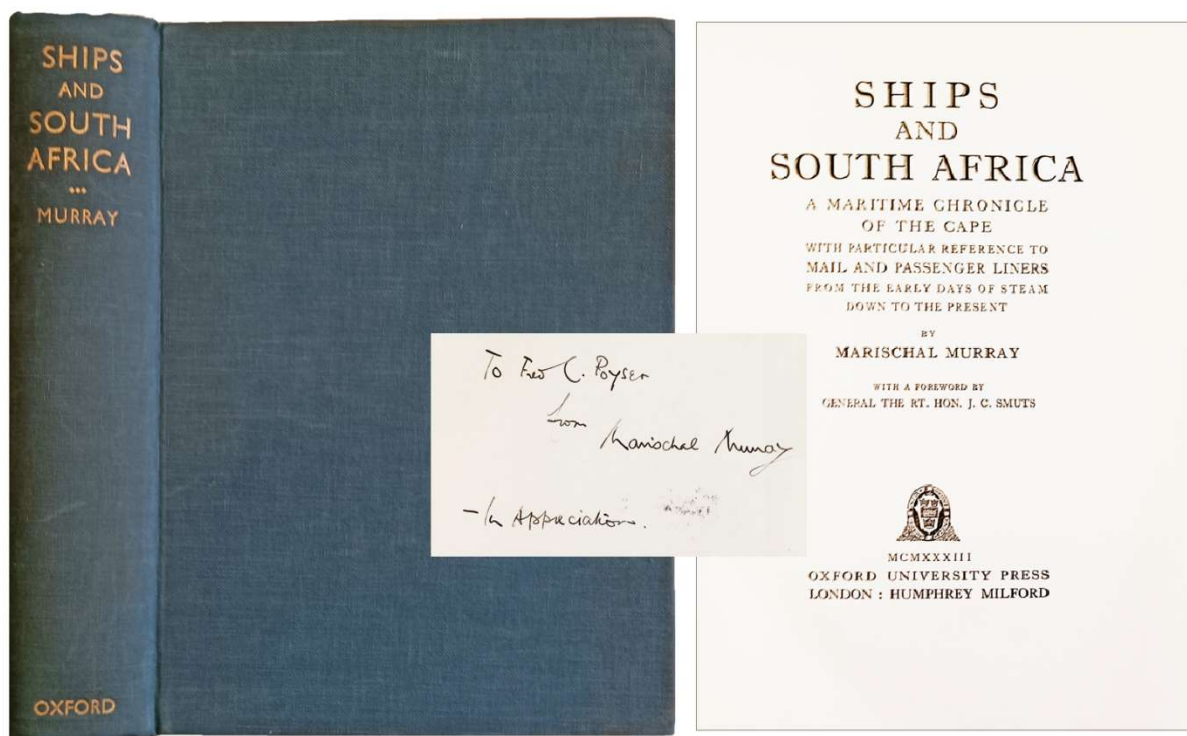 SHIPS
AND
SOUTH
AFRICA
...
MURRAY
OXFORD
To Fred C. Poyser
from
Marischal Murray
- In Appreciation.
SHIPS
AND
SOUTH AFRICA
A MARITIME CHRONICLE
OF THE CAPE
WITH PARTICULAR REFERENCE TO
MAIL AND PASSENGER LINERS
FROM THE EARLY DAYS OF STEAM
DOWN TO THE PRESENT
BY
MARISCHAL MURRAY
WITH A FOREWORD BY
GENERAL THE RT. HON. J. C. SMUTS
MCMXXXIII
OXFORD UNIVERSITY PRESS
LONDON : HUMPHREY MILFORD